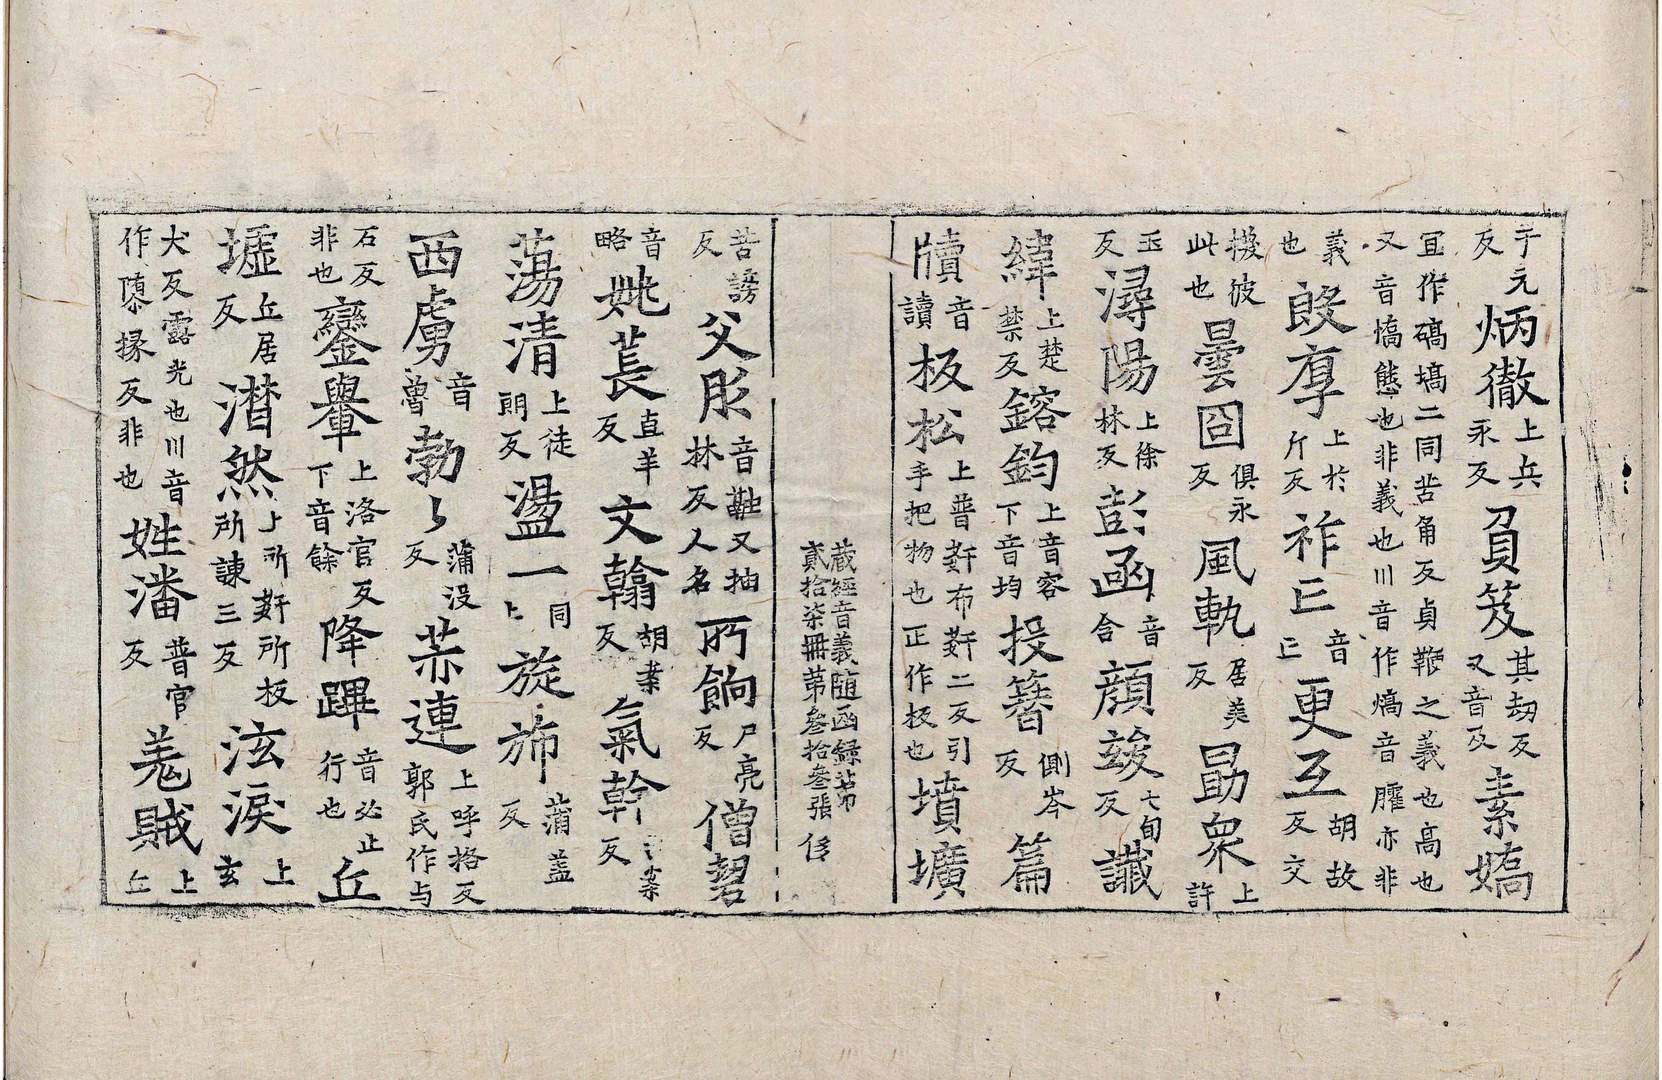 于元反炳徹上兵永反負笈其刼反又音及素嬌
宜作碻塙二同苦角反貞鞕之義也高也又音熇態也非義也川音作熇音臛亦非
義也殷厚上於斤反祚㠯音㠯更互胡故反交
撥彼此也曇囧俱永反風軌居美反勗衆上許
玉反潯陽上徐林反彭函音含顔竣七旬反讖
緯上楚禁反鎔鈞上音容下音均投簮側岑反篇
牘音讀板松上普姧布姧二反引手把物也正作扳也墳壙
藏經音義随函録苐貳拾柒冊苐叁拾叁張
苦謗反父肜音融又抽林反人名所餉尸亮反僧䂮
音略姚萇直羊反文翰胡案反氣幹案反
蕩清上徒朗反盪一同上旋斾蒲盖反
西虜音魯勃勃蒲没反赫連上呼格反郭氏作与
石反非也鑾轝上洛官反下音餘降蹕音必止行也丘
墟上丘居反潸然上所姧所板所諫三反泫淚上玄
犬反露光也川音作陊掾反非也姓潘普官反羗賊上丘